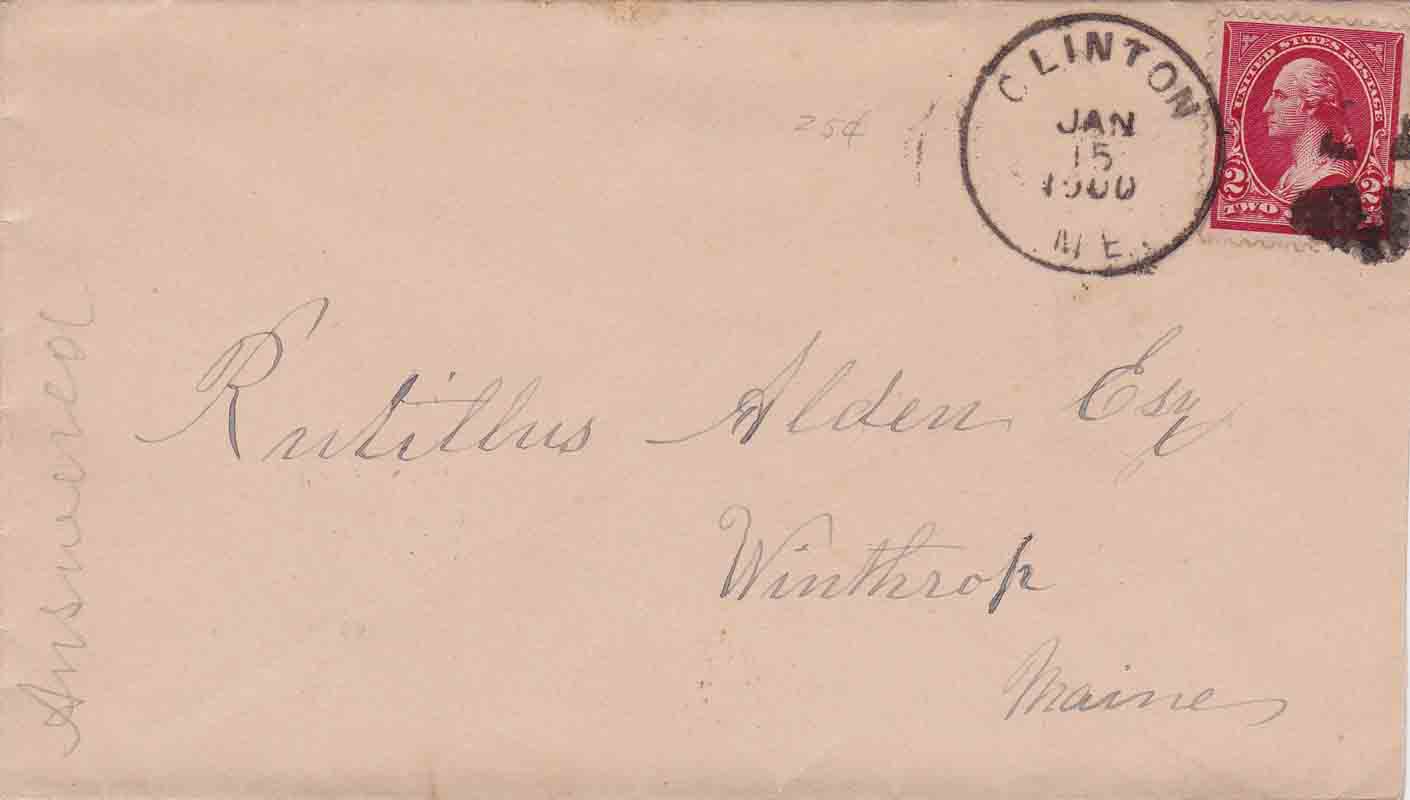 CLINTON
JAN
15
1900
ME.
UNITED STATES POSTAGE
2 2
TWO
25¢
Answered
Rutillus Alden Esq
Winthrop
Maine